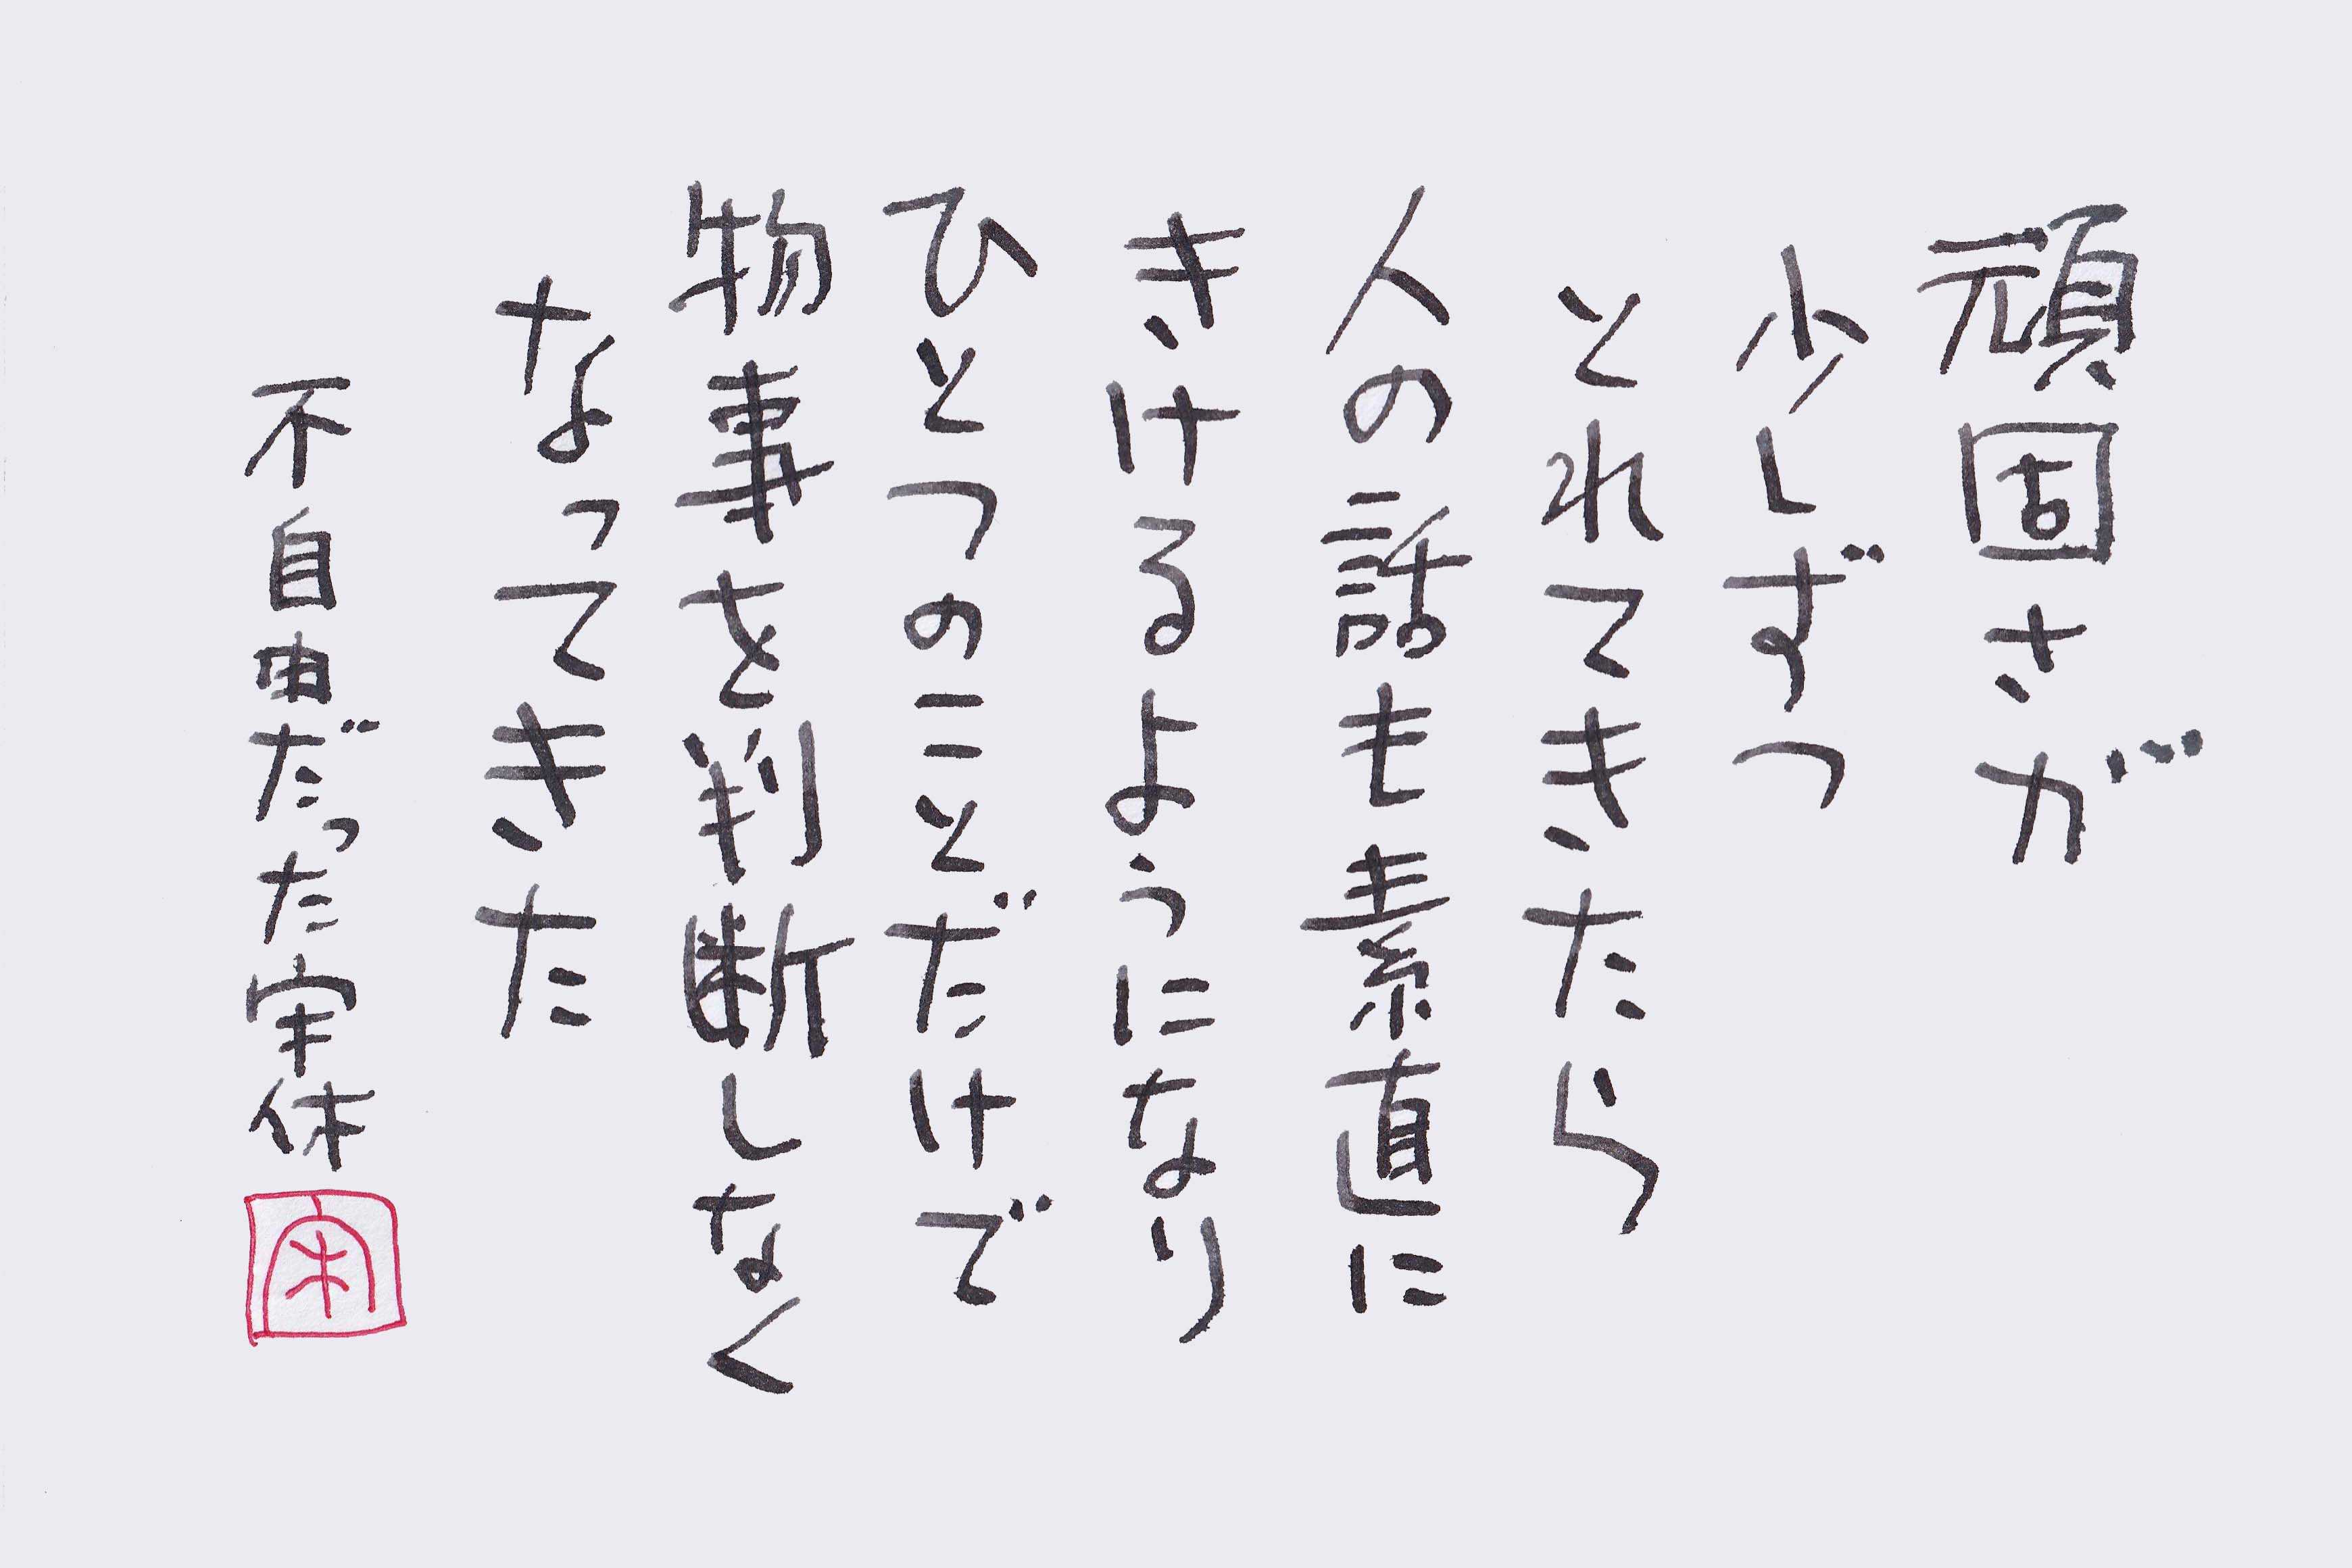 頑固さが
少しずつ
とれてきたら
人の話も素直に
きけるようになり
ひとつのことだけで
物事を判断しなく
なってきた
不自由だった